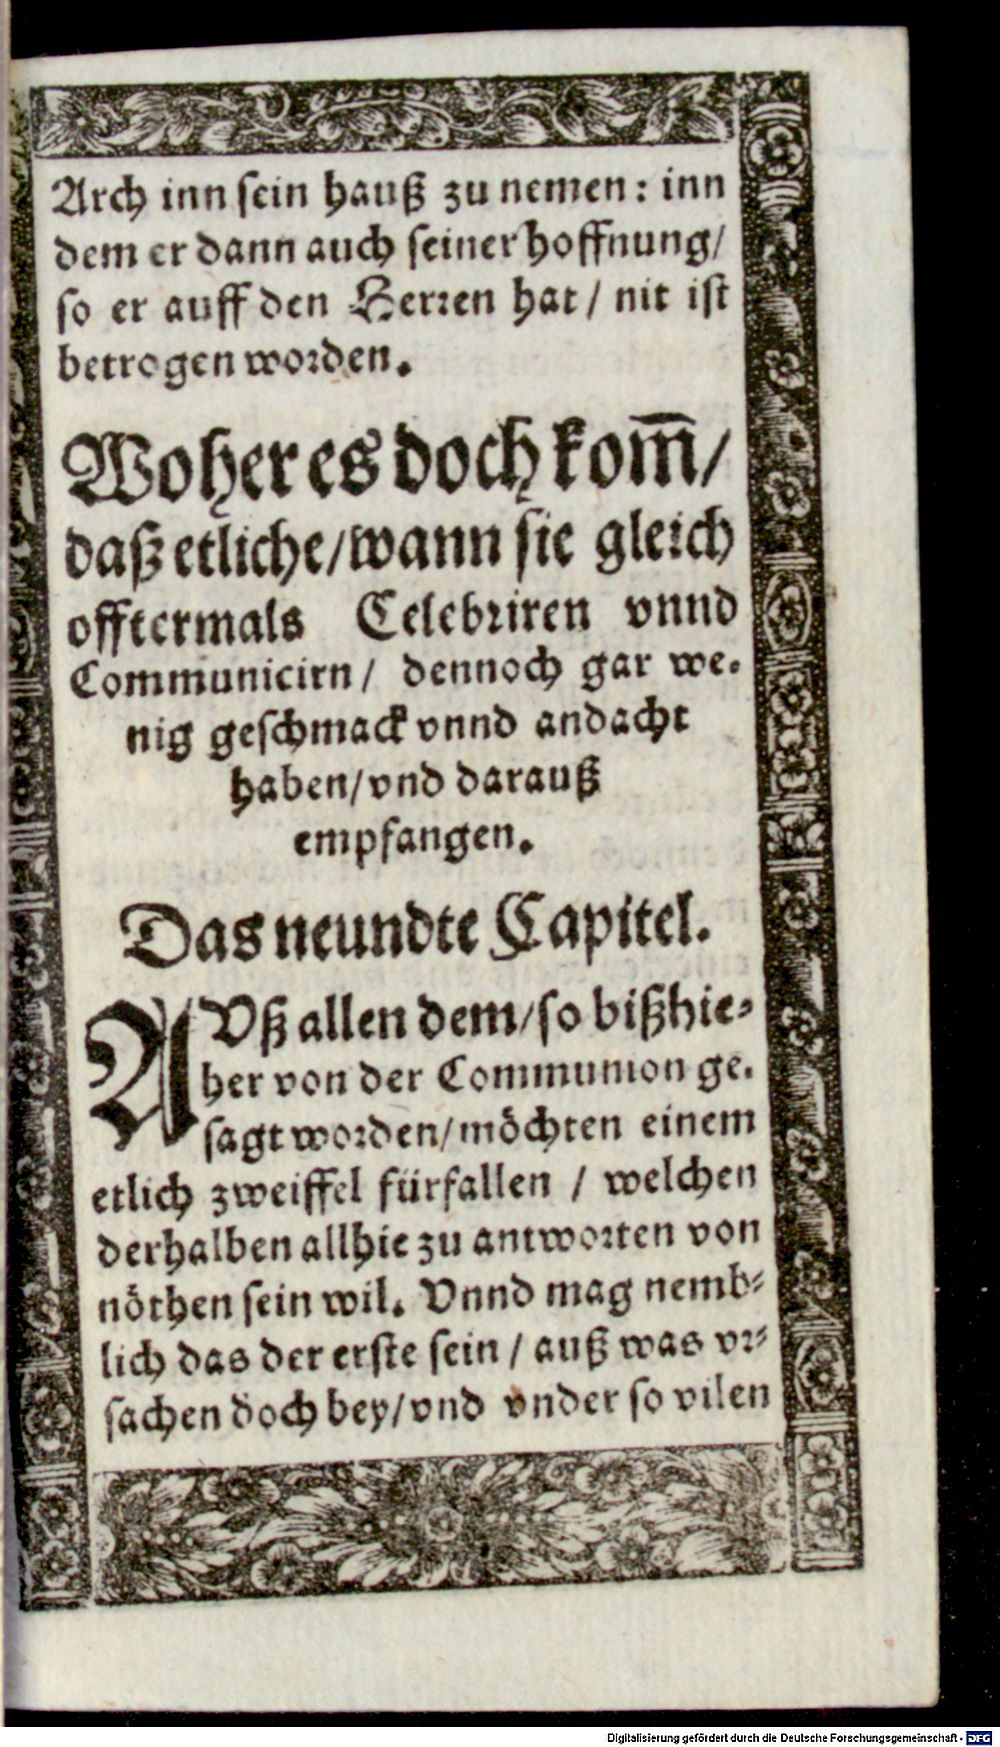 Arch inn sein hauß zu nemen: inn
dem er dann auch seiner hoffnung/
so er auff den Herren hat / nit ist
betrogen worden.
Woher es doch kom̃/
daß etliche/wann sie gleich
offtermals Celebriren vnnd
Communicirn/ dennoch gar we-
nig geschmack vnnd andacht
haben/vnd darauß
empfangen.
Das neundte Capitel.
AVß allen dem/so bißhie-
her von der Communion ge-
sagt worden/möchten einem
etlich zweiffel fürfallen / welchen
derhalben allhie zu antworten von
nöthen sein wil. Vnnd mag nemb-
lich das der erste sein / auß was vr-
sachen doch bey/vnd vnder so vilen
Digitalisierung gefördert durch die Deutsche Forschungsgemeinschaft - DFG